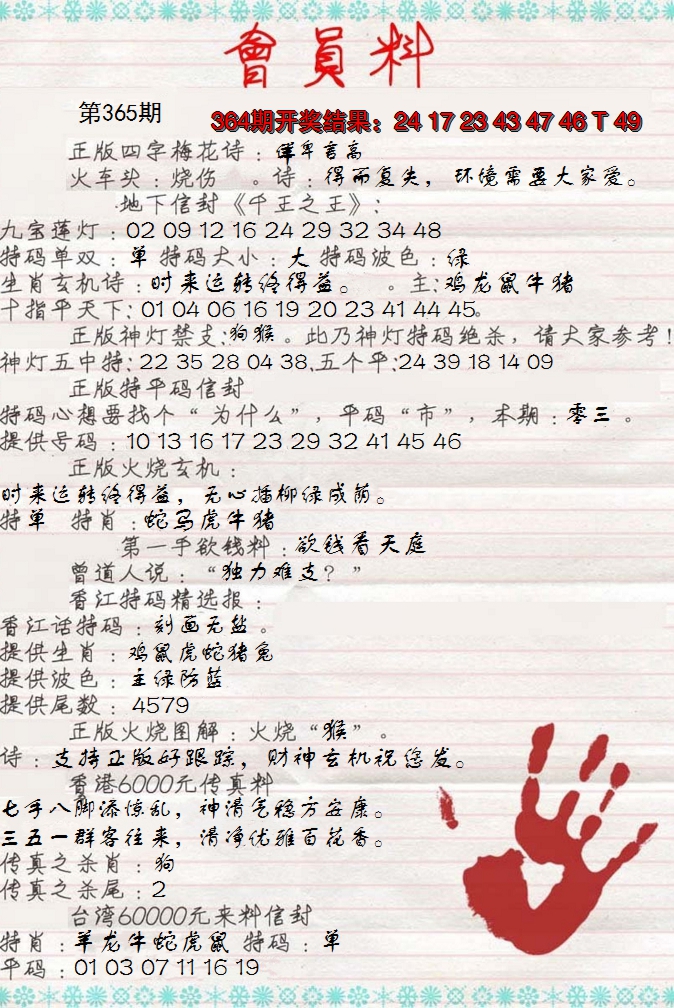 會員料
第365期
364期开奖结果：24 17 23 43 47 46 T 49
正版四字梅花诗：位卑言高
火车头：烧伤 。诗：得而复失，环境需要大家爱。
地下信封《千王之王》：
九宝莲灯：02 09 12 16 24 29 32 34 48
特码单双：单 特码大小：大 特码波色：绿
生肖玄机诗：时来运转终得益。 。主：鸡龙鼠牛猪
十指平天下：01 04 06 16 19 20 23 41 44 45。
正版神灯禁支：狗猴。此乃神灯特码绝杀，请大家参考！
神灯五中特：22 35 28 04 38.五个平：24 39 18 14 09
正版特平码信封
特码心想要找个“为什么”，平码“市”，本期：零三。
提供号码：10 13 16 17 23 29 32 41 45 46
正版火烧玄机：
时来运转终得益，无心插柳绿成荫。
特单 特肖：蛇马虎牛猪
第一手欲钱料：欲钱看天庭
曾道人说：“独力难支？”
香江特码精选报：
香江话特码：刻画无盐。
提供生肖：鸡鼠虎蛇猪兔
提供波色：主绿防蓝
提供尾数：4579
正版火烧图解：火烧“猴”。
诗：支持正版好跟踪，财神玄机祝您发。
香港6000元传真料
七手八脚添惊乱，神清气稳方安康。
三五一群客往来，清净优雅百花香。
传真之杀肖：狗
传真之杀尾：2
台湾60000元来料信封
特肖：羊龙牛蛇虎鼠 特码：单
平码：01 03 07 11 16 19